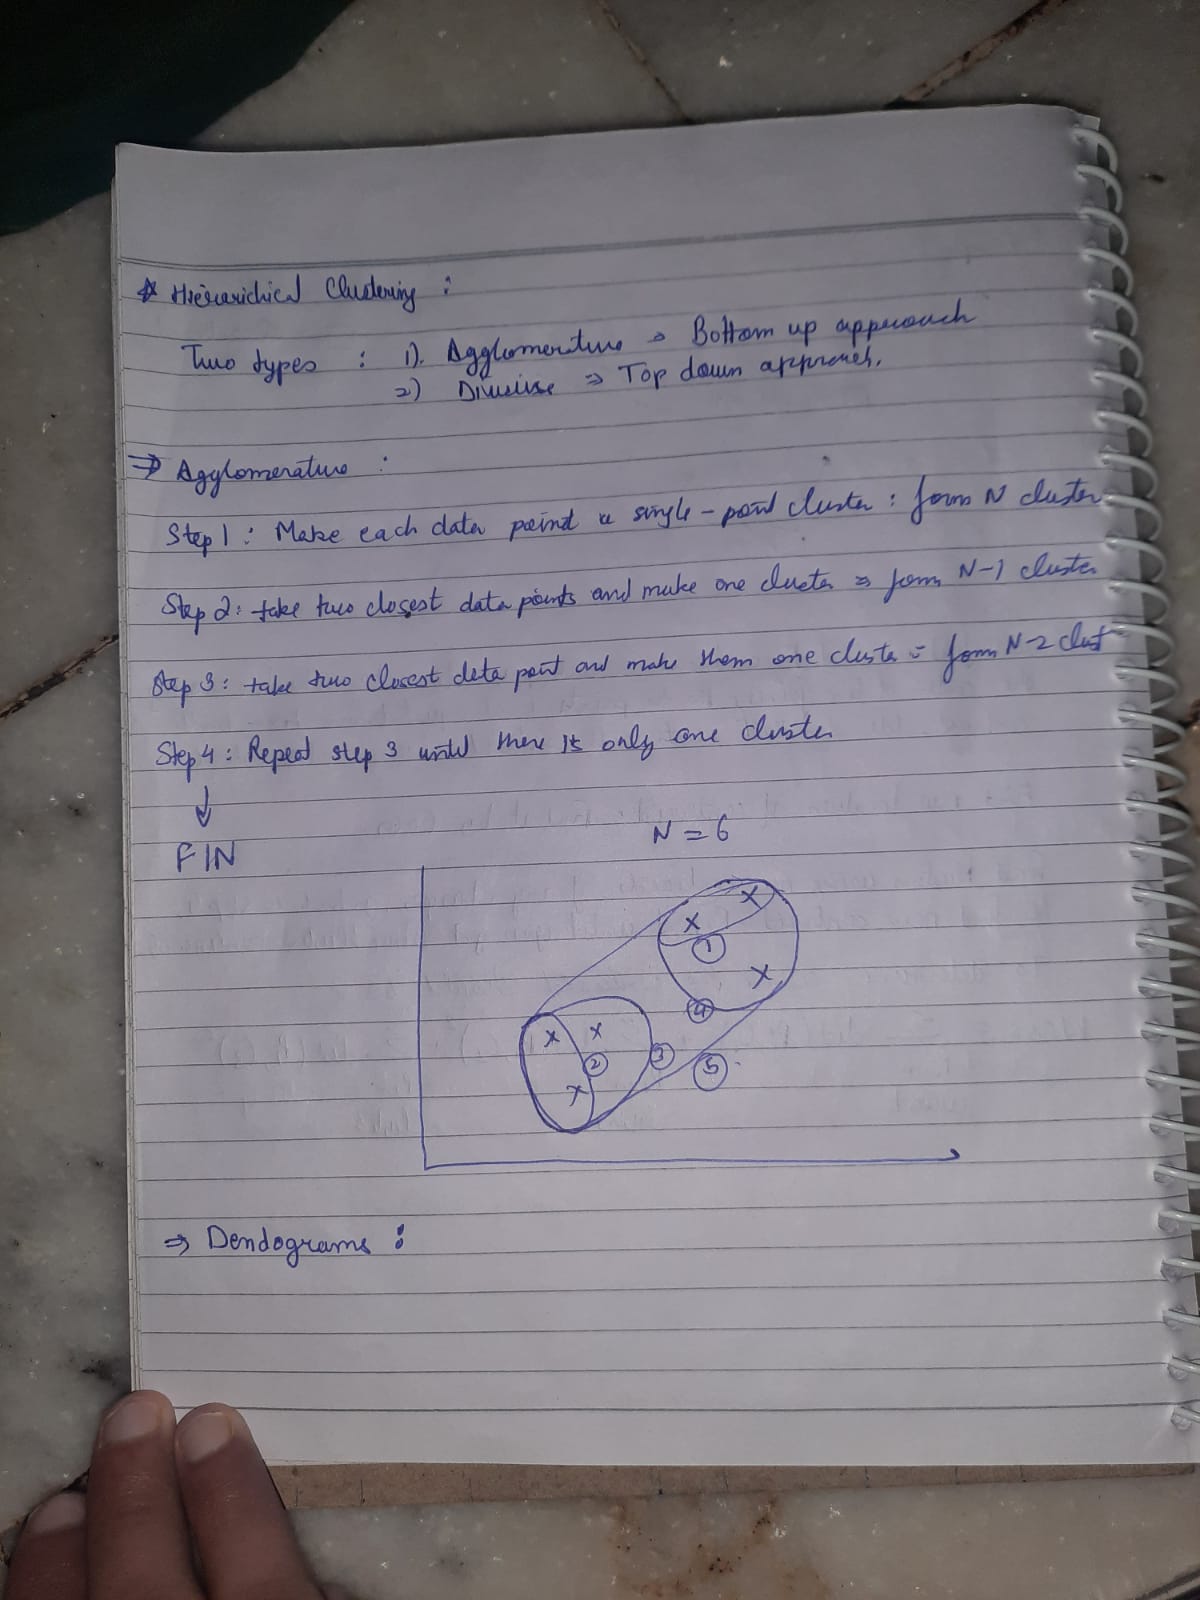 * Hierarichical Clustering :
Two types : 1). Agglomerative → Bottom up approach
2) Divisive ⇒ Top down approach.
⇒ Agglomerative :
Step 1 : Make each data point a single-point cluster : form N cluster
Step 2 : take two closest data points and make one cluster ⇒ form N-1 cluster
Step 3 : take two closest data point and make them one cluster = form N-2 clust
Step 4 : Repeat step 3 until there is only one cluster
↓
FIN
N = 6
1
4
2
3
5
⇒ Dendograms :